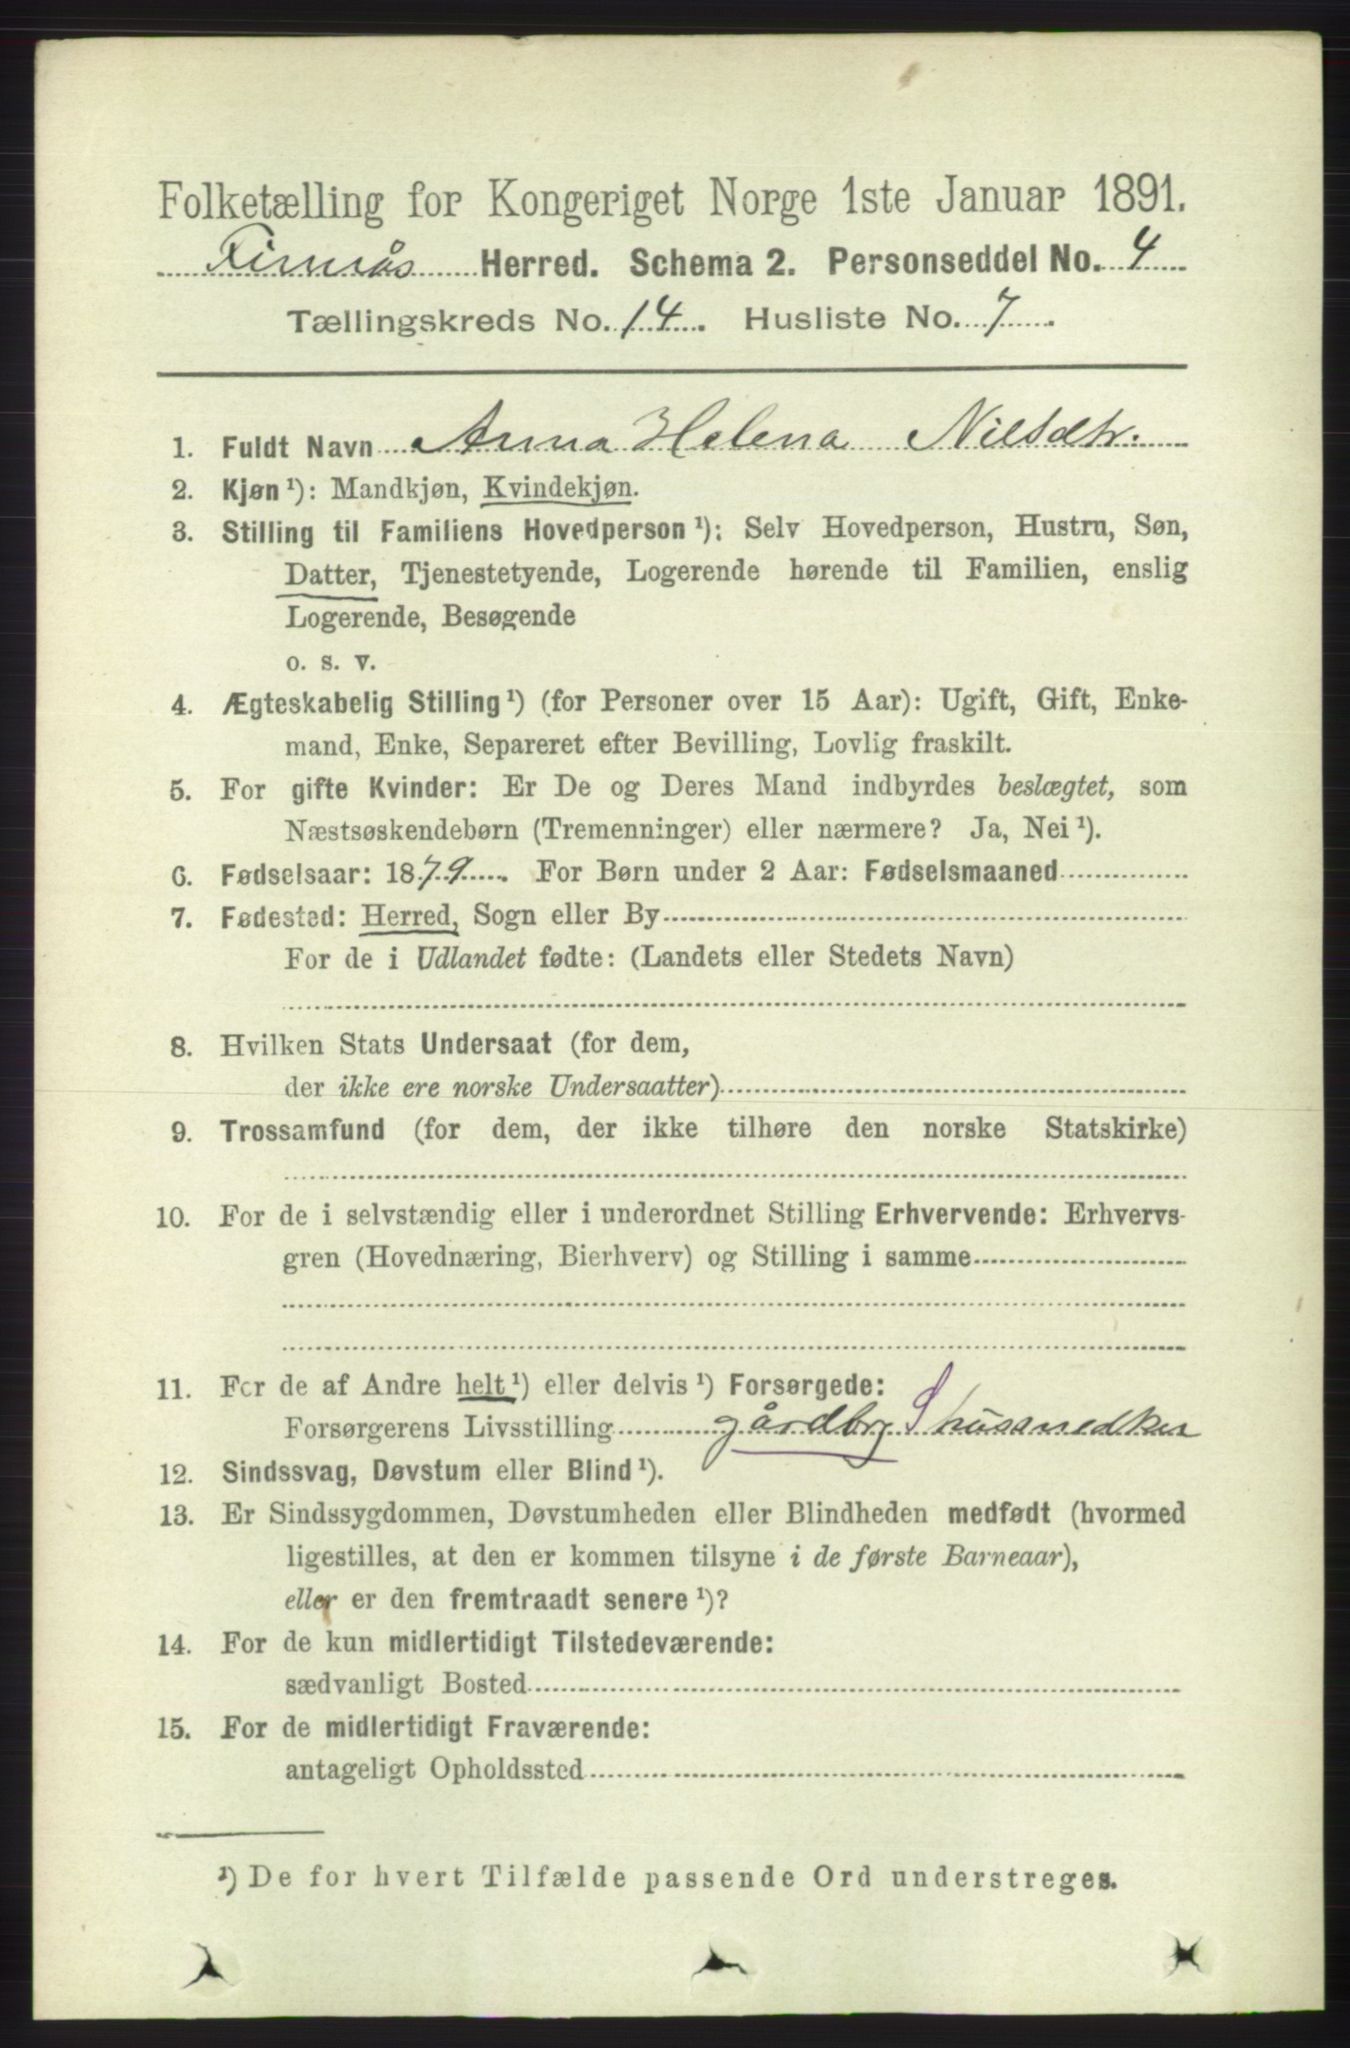 Folketælling for Kongeriget Norge 1ste Januar 1891.
Finnås Herred. Schema 2. Personseddel No. 4
Tællingskreds No. 14. Husliste No. 7
1. Fuldt Navn Anna Helena Nilsdtr.
2. Kjøn¹): Mandkjøn, Kvindekjøn.
3. Stilling til Familiens Hovedperson¹): Selv Hovedperson, Hustru, Søn,
Datter, Tjenestetyende, Logerende hørende til Familien, enslig
Logerende, Besøgende
o. s. v.
4. Ægteskabelig Stilling¹) (for Personer over 15 Aar): Ugift, Gift, Enke-
mand, Enke, Separeret efter Bevilling, Lovlig fraskilt.
5. For gifte Kvinder: Er De og Deres Mand indbyrdes beslægtet, som
Næstsøskendebørn (Tremenninger) eller nærmere? Ja, Nei¹).
6. Fødselsaar: 1879. For Børn under 2 Aar: Fødselsmaaned
7. Fødested: Herred, Sogn eller By
For de i Udlandet fødte: (Landets eller Stedets Navn)
8. Hvilken Stats Undersaat (for dem,
der ikke ere norske Undersaatter)
9. Trossamfund (for dem, der ikke tilhøre den norske Statskirke)
10. For de i selvstændig eller i underordnet Stilling Erhvervende: Erhvervs-
gren (Hovednæring, Bierhverv) og Stilling i samme
11. For de af Andre helt¹) eller delvis¹) Forsørgede:
Forsørgerens Livsstilling gårdbrg S hussnedker
12. Sindssvag, Døvstum eller Blind¹).
13. Er Sindssygdommen, Døvstumheden eller Blindheden medfødt (hvormed
ligestilles, at den er kommen tilsyne i de første Barneaar),
eller er den fremtraadt senere¹)?
14. For de kun midlertidigt Tilstedeværende:
sædvanligt Bosted
15. For de midlertidigt Fraværende:
antageligt Opholdssted
¹) De for hvert Tilfælde passende Ord understreges.